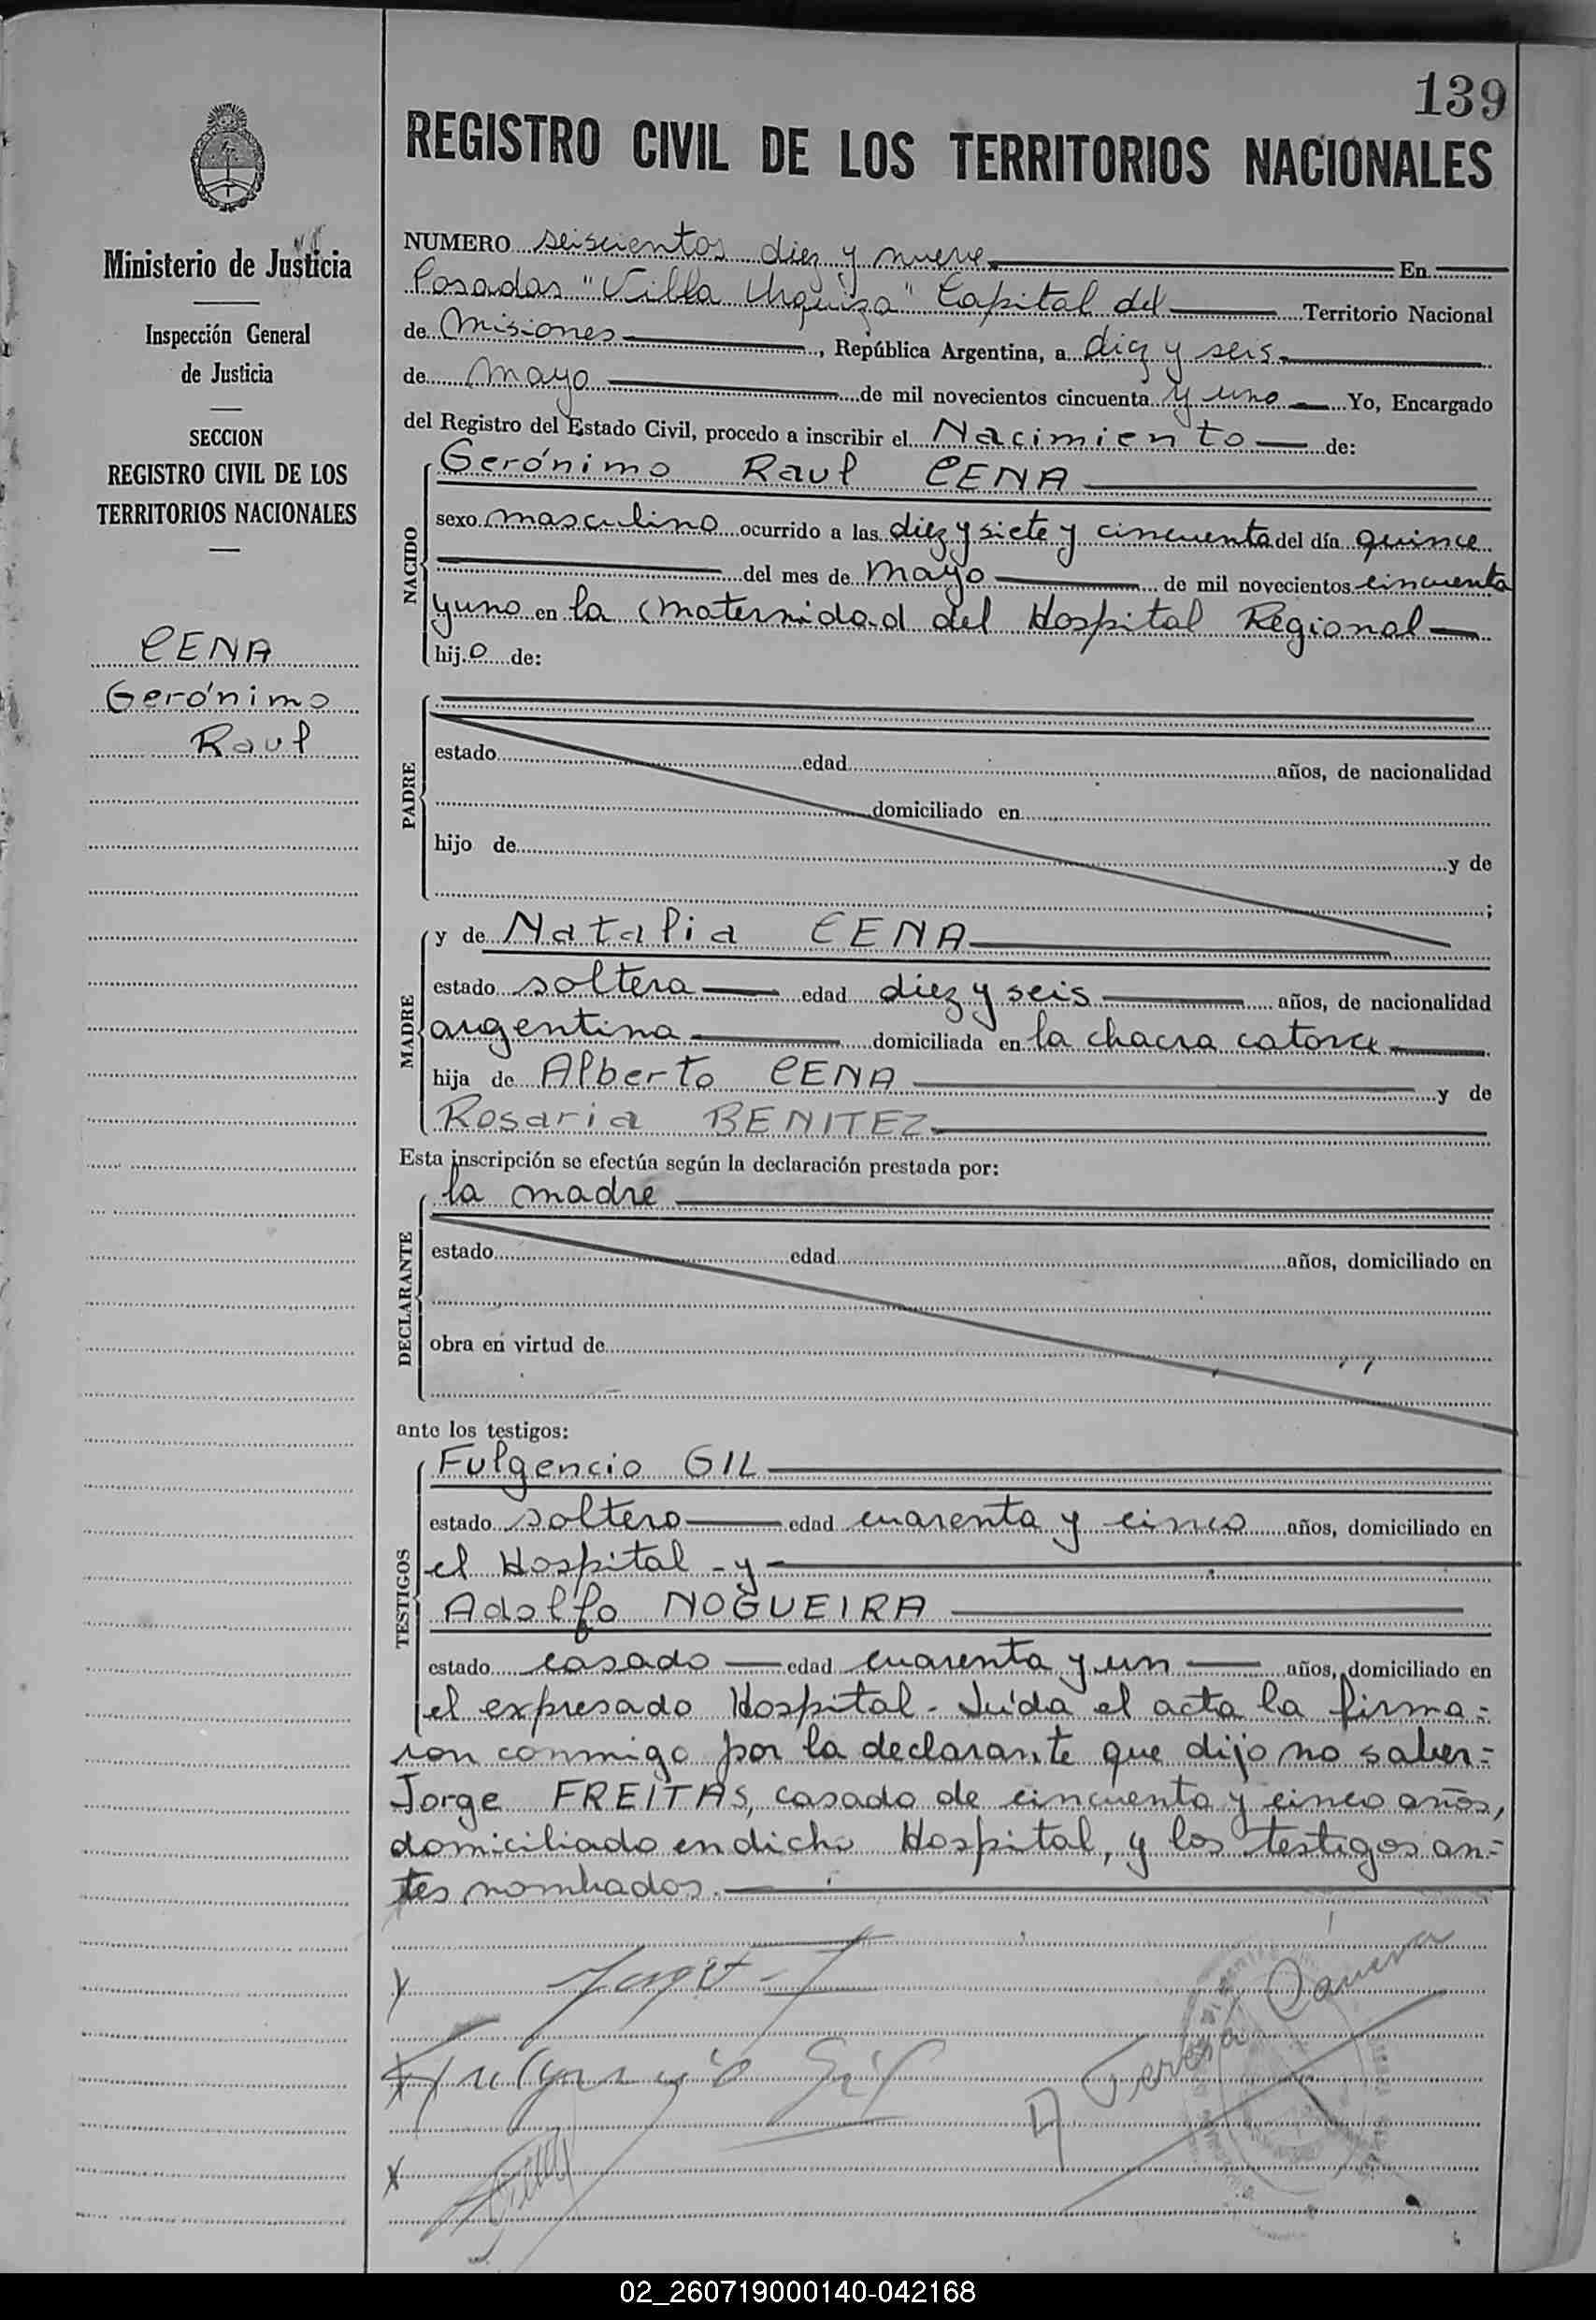 139
REGISTRO CIVIL DE LOS TERRITORIOS NACIONALES
Ministerio de Justicia
Inspección General
de Justicia
SECCION
REGISTRO CIVIL DE LOS
TERRITORIOS NACIONALES
CENA
Gerónimo
Raul
NUMERO seiscientos diez y nueve En
Posadas "Villa Urquiza" Capital del Territorio Nacional
de Misiones, República Argentina, a diez y seis
de mayo de mil novecientos cincuenta y uno Yo, Encargado
del Registro del Estado Civil, procedo a inscribir el Nacimiento de:
NACIDO
Gerónimo Raul CENA
sexo masculino ocurrido a las diez y siete y cincuenta del día quince
del mes de mayo de mil novecientos cincuenta
y uno en la maternidad del Hospital Regional
hijo de:
PADRE
estado edad años, de nacionalidad
domiciliado en
hijo de y de
;
MADRE
y de Natalia CENA
estado soltera edad diez y seis años, de nacionalidad
argentina domiciliada en la chacra catorce
hija de Alberto CENA y de
Rosaria BENITEZ
Esta inscripción se efectúa según la declaración prestada por:
DECLARANTE
la madre
estado edad años, domiciliado en
obra en virtud de
ante los testigos:
TESTIGOS
Fulgencio GIL
estado soltero edad cuarenta y cinco años, domiciliado en
el Hospital - y
Adolfo NOGUEIRA
estado casado edad cuarenta y un años, domiciliado en
el expresado Hospital - Leída el acta la firma=
ron conmigo por la declarante que dijo no saber=
Jorge FREITAS, casado de cincuenta y cinco años,
domiciliado en dicho Hospital, y los testigos an=
tes nombrados.
Fulgencio Gil
Teresa
02_260719000140-042168